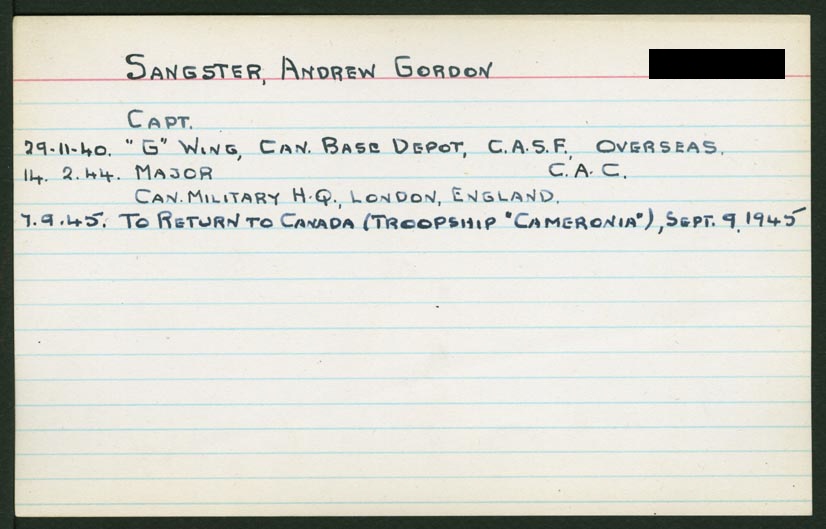 SANGSTER, ANDREW GORDON
CAPT.
29-11-40. "G" WING, CAN. BASE DEPOT, C.A.S.F., OVERSEAS.
14. 2.44. MAJOR C.A.C.
CAN. MILITARY H.Q., LONDON, ENGLAND.
7.9.45. TO RETURN TO CANADA (TROOPSHIP "CAMERONIA"), SEPT. 9, 1945